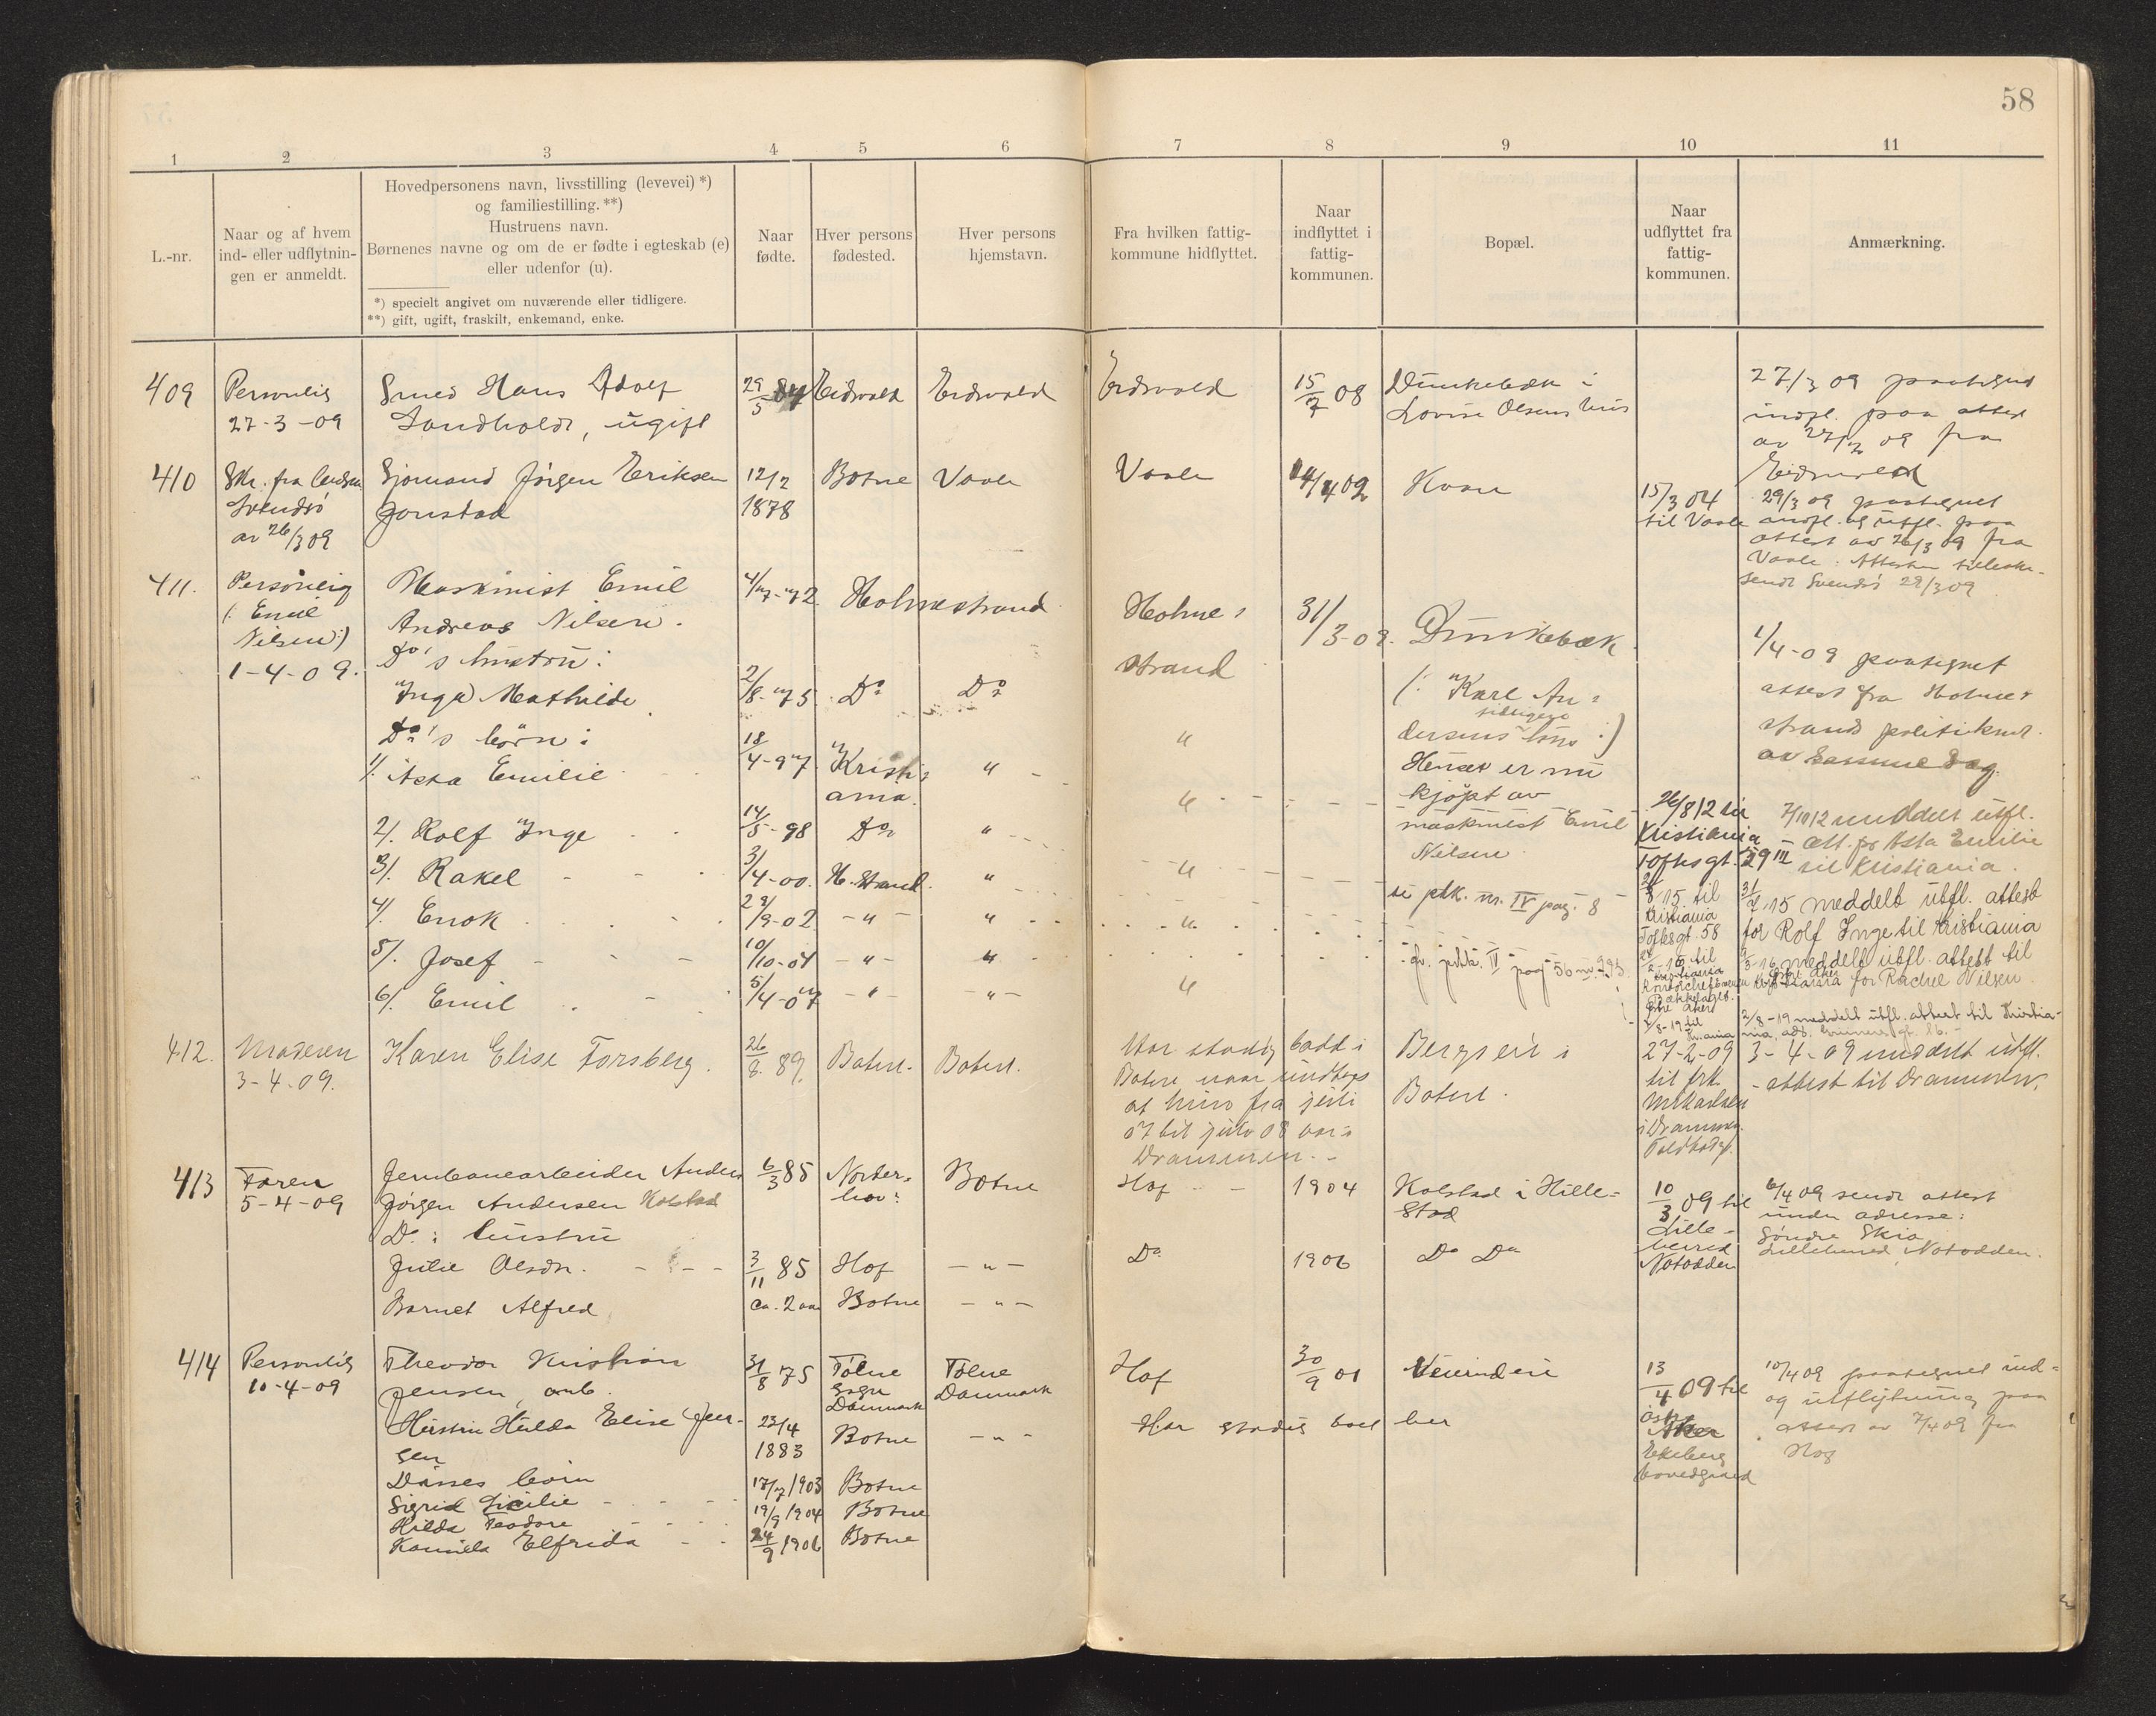 58
1 2 3 4 5 6 7 8 9 10 11
L.-nr.
Naar og af hvem
ind- eller udflytnin-
gen er anmeldt.
Hovedpersonens navn, livsstilling (levevei) *)
og familiestilling. **)
Hustruens navn.
Børnenes navne og om de er fødte i egteskab (e)
eller udenfor (u).
*) specielt angivet om nuværende eller tidligere.
**) gift, ugift, fraskilt, enkemand, enke.
Naar
fødte.
Hver persons
fødested.
Hver persons
hjemstavn.
Fra hvilken fattig-
kommune hidflyttet.
Naar
indflyttet i
fattig-
kommunen.
Bopæl.
Naar
udflyttet fra
fattig-
kommunen.
Anmærkning.
409
Personlig
27-3-09
Smed Hans Adolf
Sandholdt, ugift
29/5 84
Eidsvold
Eidsvold
Eidsvold
15/7 08
Dunkebæk i
Lovise Olsens hus
27/3 09 paategnet
indfl. paa attest
av 27/2 09 fra
Eidsvold
410
Skr. fra
Svendsö
av 26/3 09
Sjömand Jörgen Eriksen
Jonstad
12/2
1878
Botne
Vaale
Vaale
14/4 02
15/3 04
til Vaale
29/3 09 paategnet
indfl. og utfl. paa
attest av 26/3 09 fra
Vaale. Attesten tilbake-
sendt Svendsö 29/3 09
411.
Personlig
(: Emil
Nilsen :)
1-4-09.
Maskinist Emil
Andreas Nilsen.
Do's hustru:
Inga Mathilde
Do's börn:
1/. Asta Emilie
2/. Rolf Inge
3/. Rakel
4/. Enok
5/. Josef
6/. Emil
4/7-72.
2/8-75
18/4-97
14/5-98
3/4-00.
28/9-02
10/10-04
5/4-07
Holmestrand
Do Do
Kristi-
ania. "
Do "
H.strand. "
-"- "
-"- "
-"- -"-
Holme-
strand
"
"
"
"
"
31/3-09.
Dunkebæk
(: Karl An-
tidligere
dersens hus :)
Huset er nu
kjöpt av
maskinist Emil
Nilsen
se ptk. nr. IV pag. 8
26/8 12 til
Kristiania
Toftesgt. 29 III
8 15. til
Kristiania
Toftesgt. 58
1/4-09 paategnet
attest fra Holme-
strand politikam.
av samme dag.
7/10 12 meddelt utfl.
att. for Asta Emilie
til Kristiania.
31/7.15 meddelt utfl. attest
for Rolf Inge til Kristiania
meddelt utfl. attest til
for Rachel Nilsen
2/8-19 meddelt utfl. attest til Kristia-
412.
Moderen
3-4-09.
Karen Elise Forsberg.
26/8. 89.
Botne.
Botne.
Har stadig bodd i
Botne naar undtags
at hun fra juli
07 til juli 08 var i
Drammen.
Berg seie i
Botne.
27-2-09
til frk.
Mikaelsen
i Drammen
3-4-09 meddelt utfl.
-attest til Drammen.
413
Faren
5-4-09
Jernbanearbeider Anders
Jörgen Andersen Kolstad
Do: hustru
Julie Olsdn.
Barnet Alfred
6/3 85
3/11 85
ca. 2 aar
Norder-
hov:
Hof
Botne
Botne
-"-
-"-
Hof
Do
1904
1906
Kolstad i Hille-
stad
Do Do
10/3 09 til
Lille-
herred
Notodden
6/4 09 sendt attest
under adresse:
Söndre Skia
Lilleherred, Notodden.
414
Personlig
10-4-09
Theodor Kristian
Jensen, arb.
Hustru Hulda Elise Jen-
sen
Disses börn
Sigrid Sicilie
Hilda Teodora
Kamilla Elfrida
31/8 75
23/4
1883
17/7 1903
19/9 1904
24/9 1906
Tölne
Sogn
Danmark
Botne
Botne
Botne
Botne
Tölne
Danmark
-"-
Hof
Har stadig boet her
30/9 01
13/4 09 til
Östre
Aker
Ekeberg
hovedgaard
10/4 09 paategnet ind-
og utflytning paa
attest av 7/4 09 fra
Hof